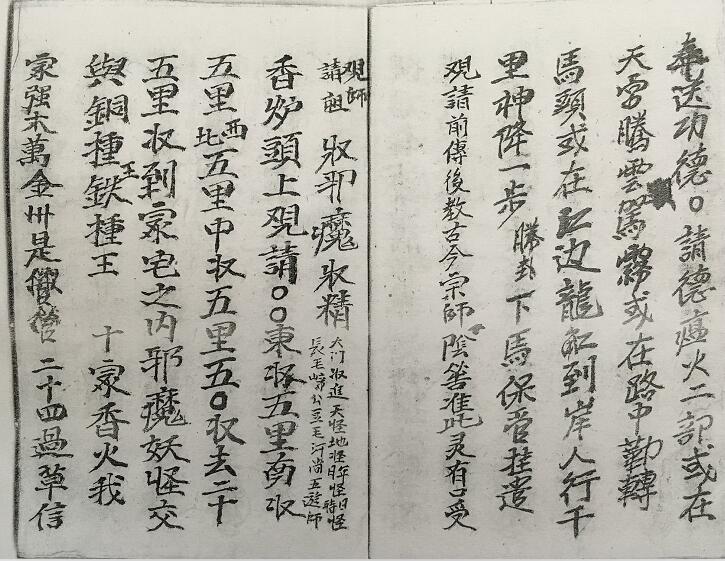 奉送功德〇請德瘟火二部或在
天宮騰雲駕霧或在路中勒轉
馬頭或在江边龍舡到岸人行千
里神降一步勝卦下馬保管拄遣
覌請前傳後教古今宗師陰笞准此灵有口受
覌師請祖 收邪魔收精大门收進天怪地怪年怪日怪時怪長毛公五毛河尚五遊師
香炉頭上覌請〇〇東收五里南收
五里西北五里中收五里一五〇收去二十
五里收到家宅之内邪魔妖怪交
與銅種王鉄種王 十家香火我
家强木萬金卅是營 二十四過草信